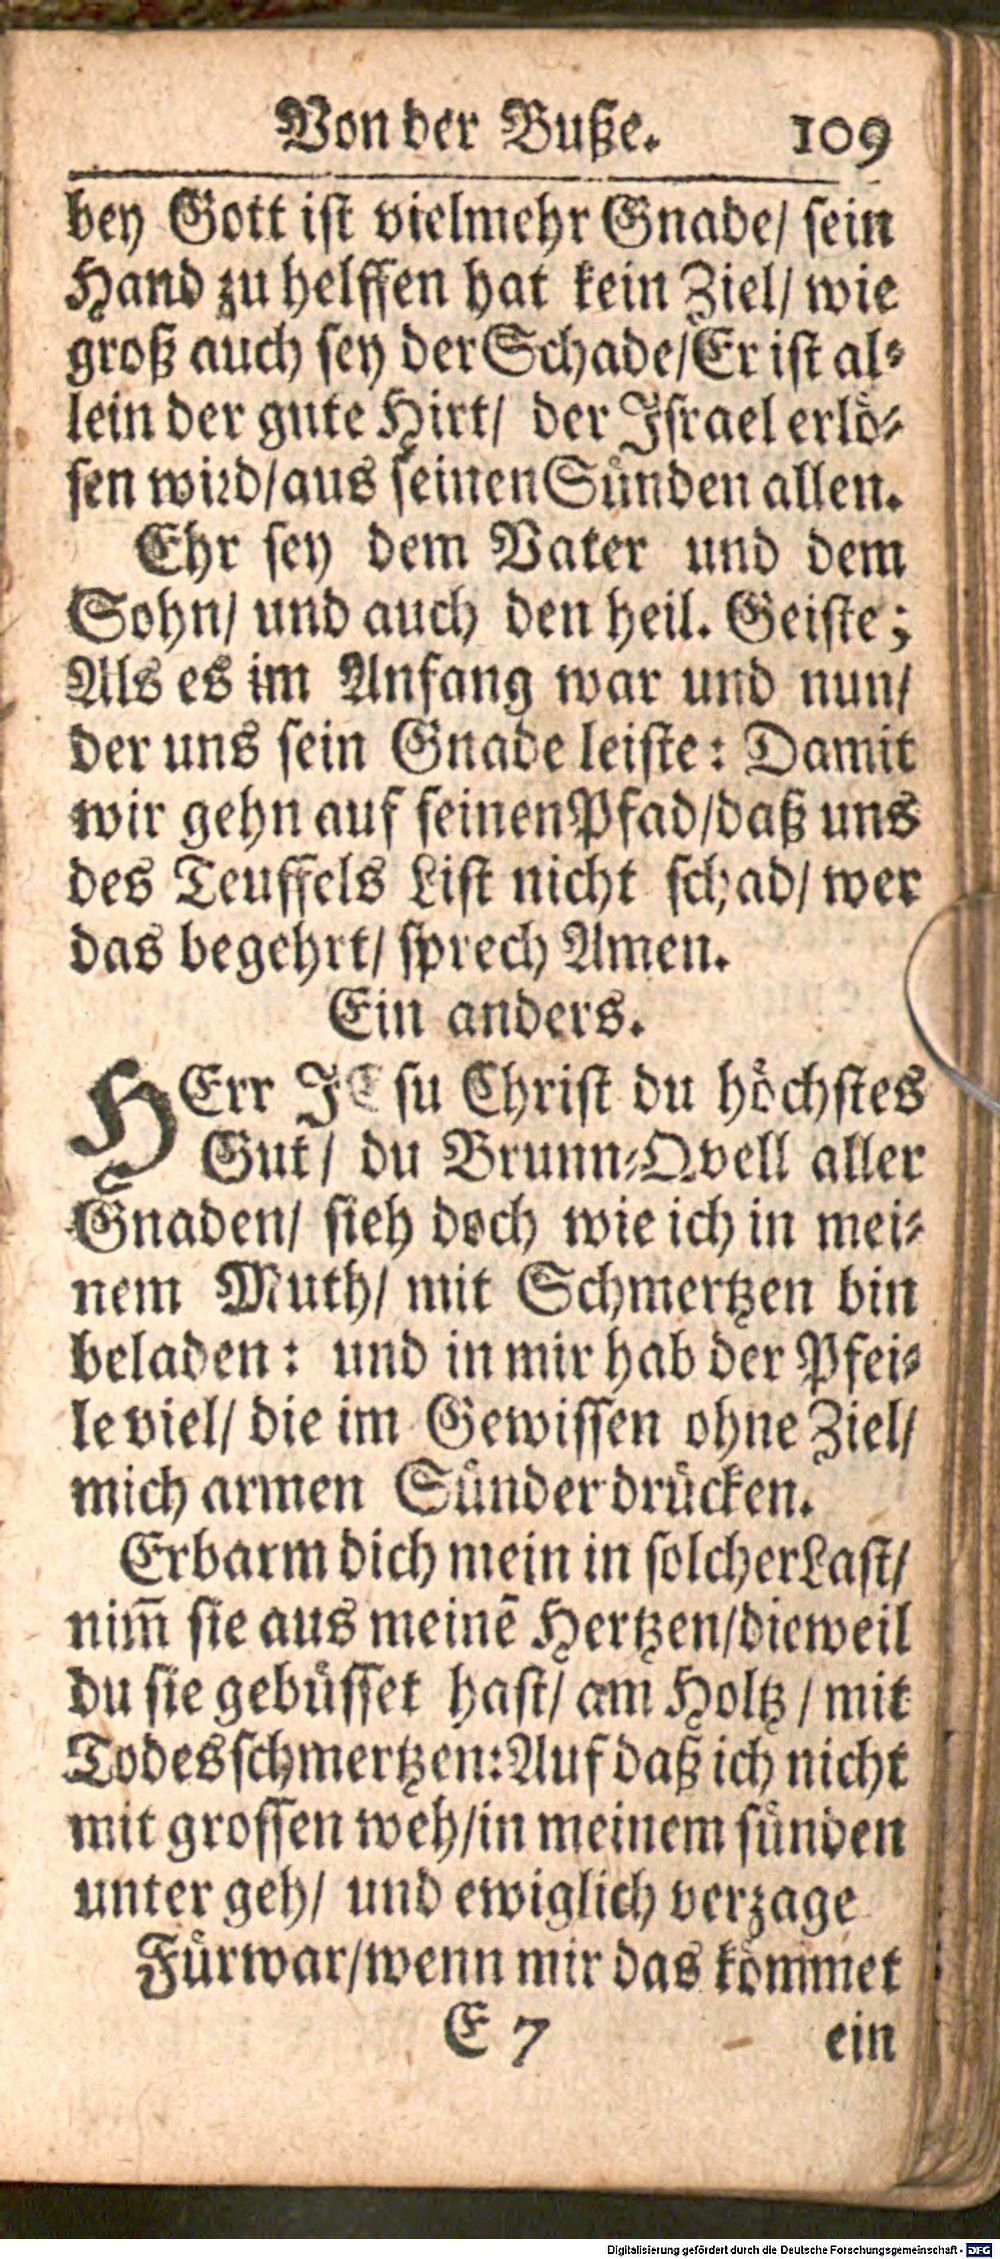 Von der Buße. 109
bey Gott ist vielmehr Gnade/ sein
Hand zu helffen hat kein Ziel/ wie
groß auch sey der Schade/ Er ist al-
lein der gute Hirt/ der Israel erlö-
sen wird/ aus seinen Sünden allen.
Ehr sey dem Vater und dem
Sohn/ und auch den heil. Geiste;
Als es im Anfang war und nun/
der uns sein Gnade leiste: Damit
wir gehn auf seinen Pfad/ daß uns
des Teuffels List nicht schad/ wer
das begehrt/ sprech Amen.
Ein anders.
HErr JEsu Christ du höchstes
Gut/ du Brunn-Qvell aller
Gnaden/ sieh doch wie ich in mei-
nem Muth/ mit Schmertzen bin
beladen: und in mir hab der Pfei-
le viel/ die im Gewissen ohne Ziel/
mich armen Sünder drücken.
Erbarm dich mein in solcher Last/
nim̅ sie aus meinē Hertzen/ dieweil
du sie gebüsset hast/ am Holtz/ mit
Todesschmertzen: Auf daß ich nicht
mit grossen weh/ in meinem sünden
unter geh/ und ewiglich verzage
Fürwar/ wenn mir das kömmet
E 7 ein
Digitalisierung gefördert durch die Deutsche Forschungsgemeinschaft - DFG